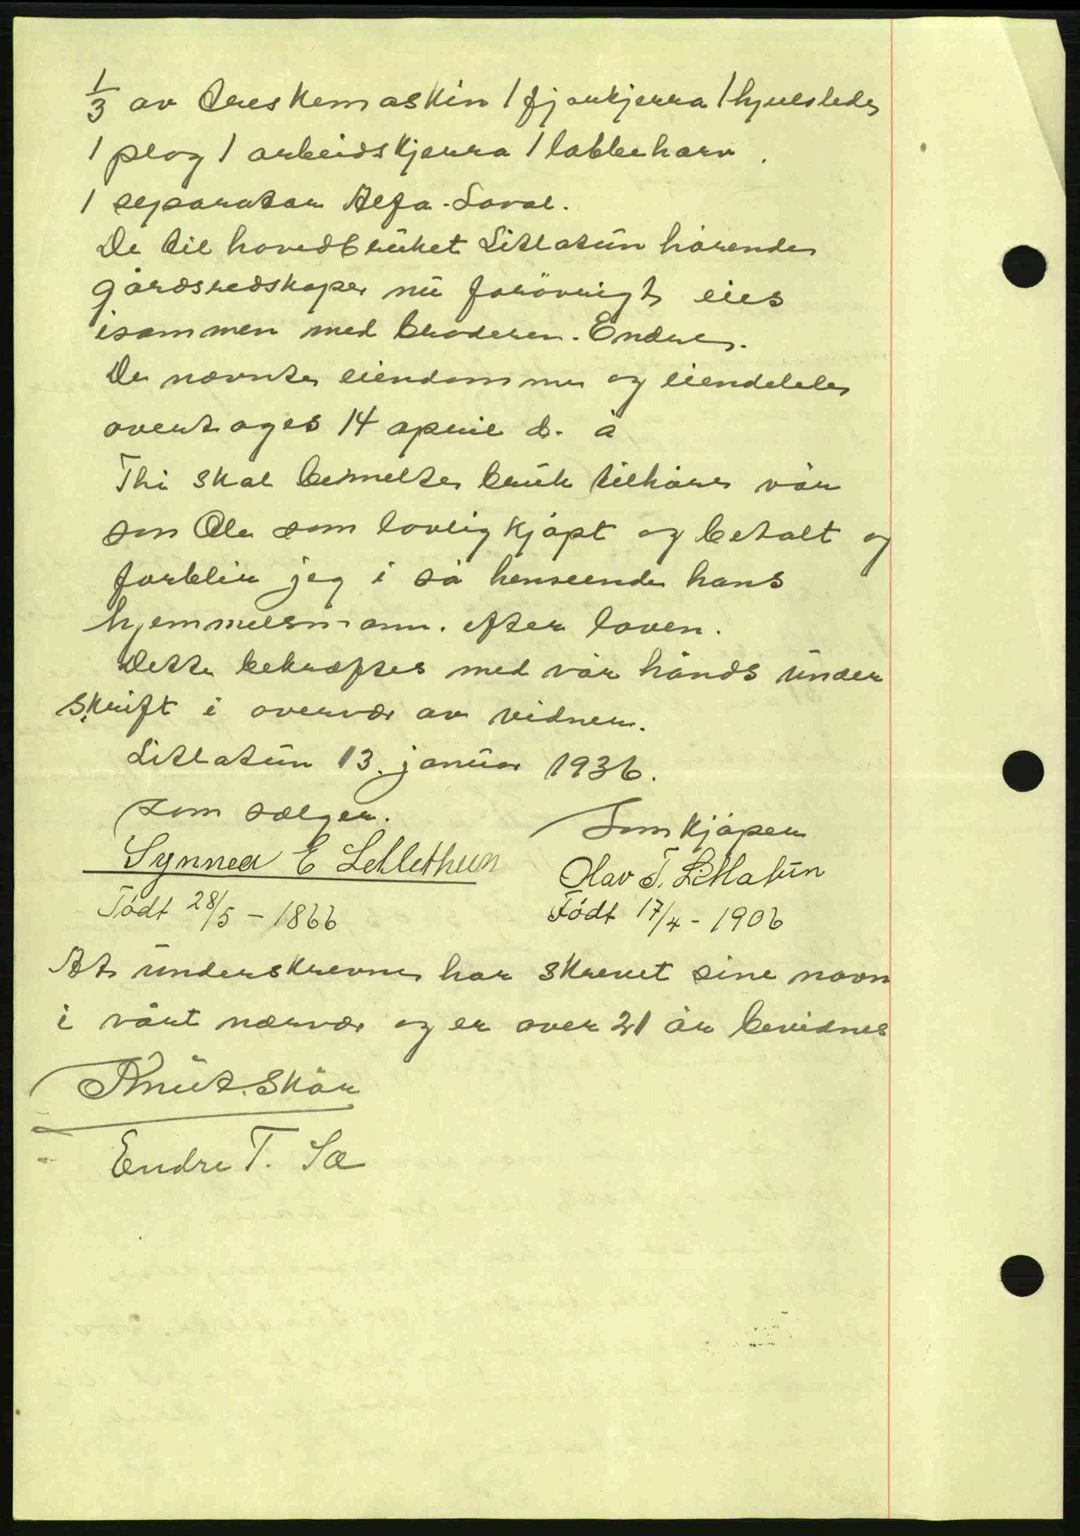 1/3 av treskemaskin 1 fjærkjerra 1 hjulslede
1 plog 1 arbeidskjerra 1 labbeharv.
1 separator Alfa-Laval.
De til hovedbruket Litlatun hørende
gårdsredskaper nu forøvrigt eies
isammen med broderen. Endre.
De nævnte eiendommer og eiendeler
overtages 14 april d. å
Thi skal bemelte bruk tilhøre vår
søn Ola som lovlig kjøpt og betalt og
forblir jeg i så henseende hans
hjemmelsmann. efter loven.
Dette bekræftes med vår hånds under
skrift i overvær av vidner.
Litlatun 13. januar 1936.
som sælger.
Som kjøper
Synneva E Litlethun
Olav T. Litlatun
Født 28/5 - 1866
Født 17/4 - 1906
At underskrevne har skrevet sine navn
i vårt nærvær og er over 21 år bevidnes
Knut. Skår
Endre T. Sæ